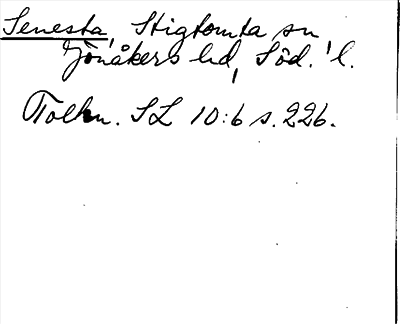 Senesta, Stigtomta sn
Jönåkers hd, Söd. l.
Tolkn. SL 10:6 s. 226.